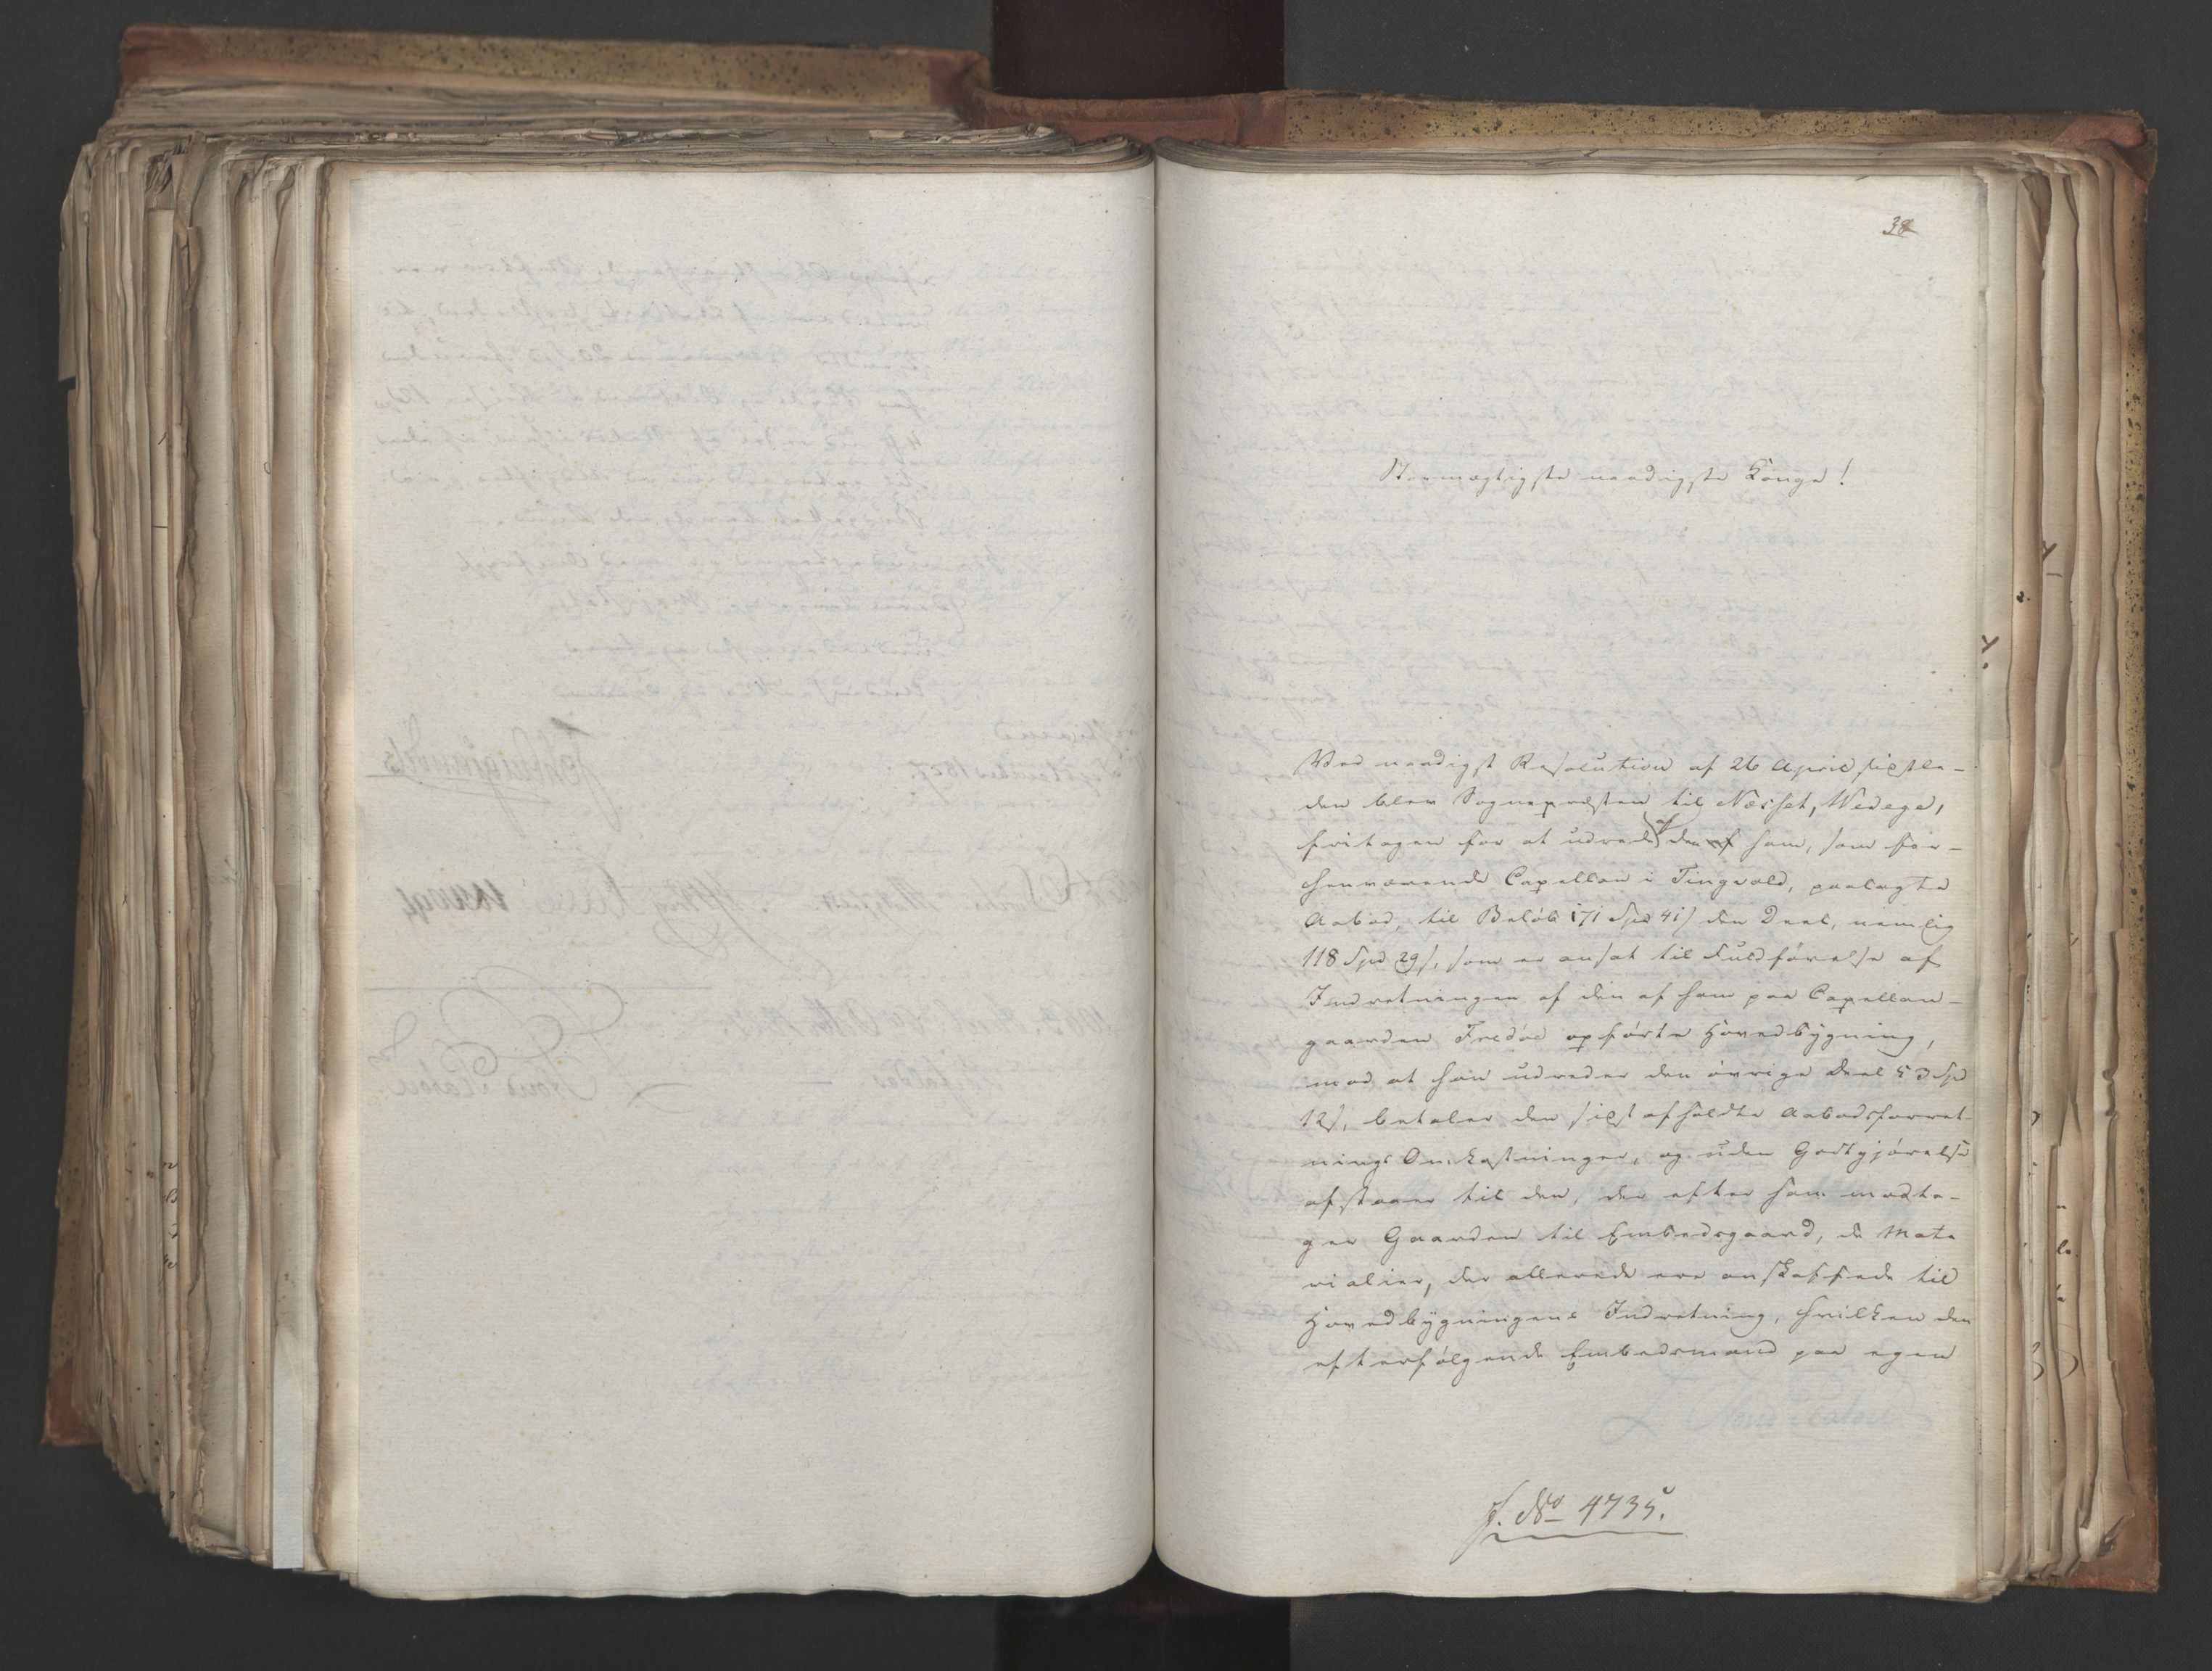 38
Stormægtigste naadigste Konge!
Ved naadigst Resolution af 26 April sidstle-
den blev Sognepræsten til Næsset, Wedege,
fritagen for at udrede af den ham, som for-
henværende Capellan i Tingvold, paalagte
Aabod, til Beløb 171 Spd 41 s den Deel, nemlig
118 Spd 29 s, som er ansat til Fuldførelse af
Indretningen af den af ham paa Capellan-
gaarden Fredøe opførte Hovedbygning,
mod at han udreder den øvrige Deel 53 Spd
12 s, betaler den sidst afholdte Aabodsforret-
nings Omkostninger, og uden Godtgjørelse
afstaaer til den, der efter ham modta-
ger Gaarden til Embedsgaard, de Mate
rialier, der allerede ere anskaffede til
Hovedbygningens Indretning, hvilken den
efterfølgende Embedsmand paa egen
J. No 4735.